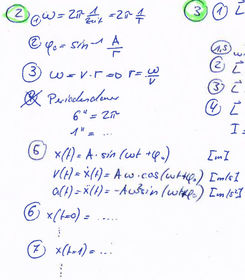 2 ① ω = 2π · 1/Zeit = 2π 1/T
② φ₀ = sin⁻¹ A/r
③ ω = v · r = 0 r = ω/v
④ Periodendauer
6" = 2π
1" = ...
⑤ x(t) = A · sin(ωt + φ₀) [m]
v(t) = ẋ(t) = Aω · cos(ωt + φ₀) [m/s]
a(t) = ẍ(t) = -Aω² sin(ωt + φ₀) [m/s²]
⑥ x(t=0) = ....
⑦ x(t=1) = ....
3 ① L
1,5
② L
③ L
④ L
I =